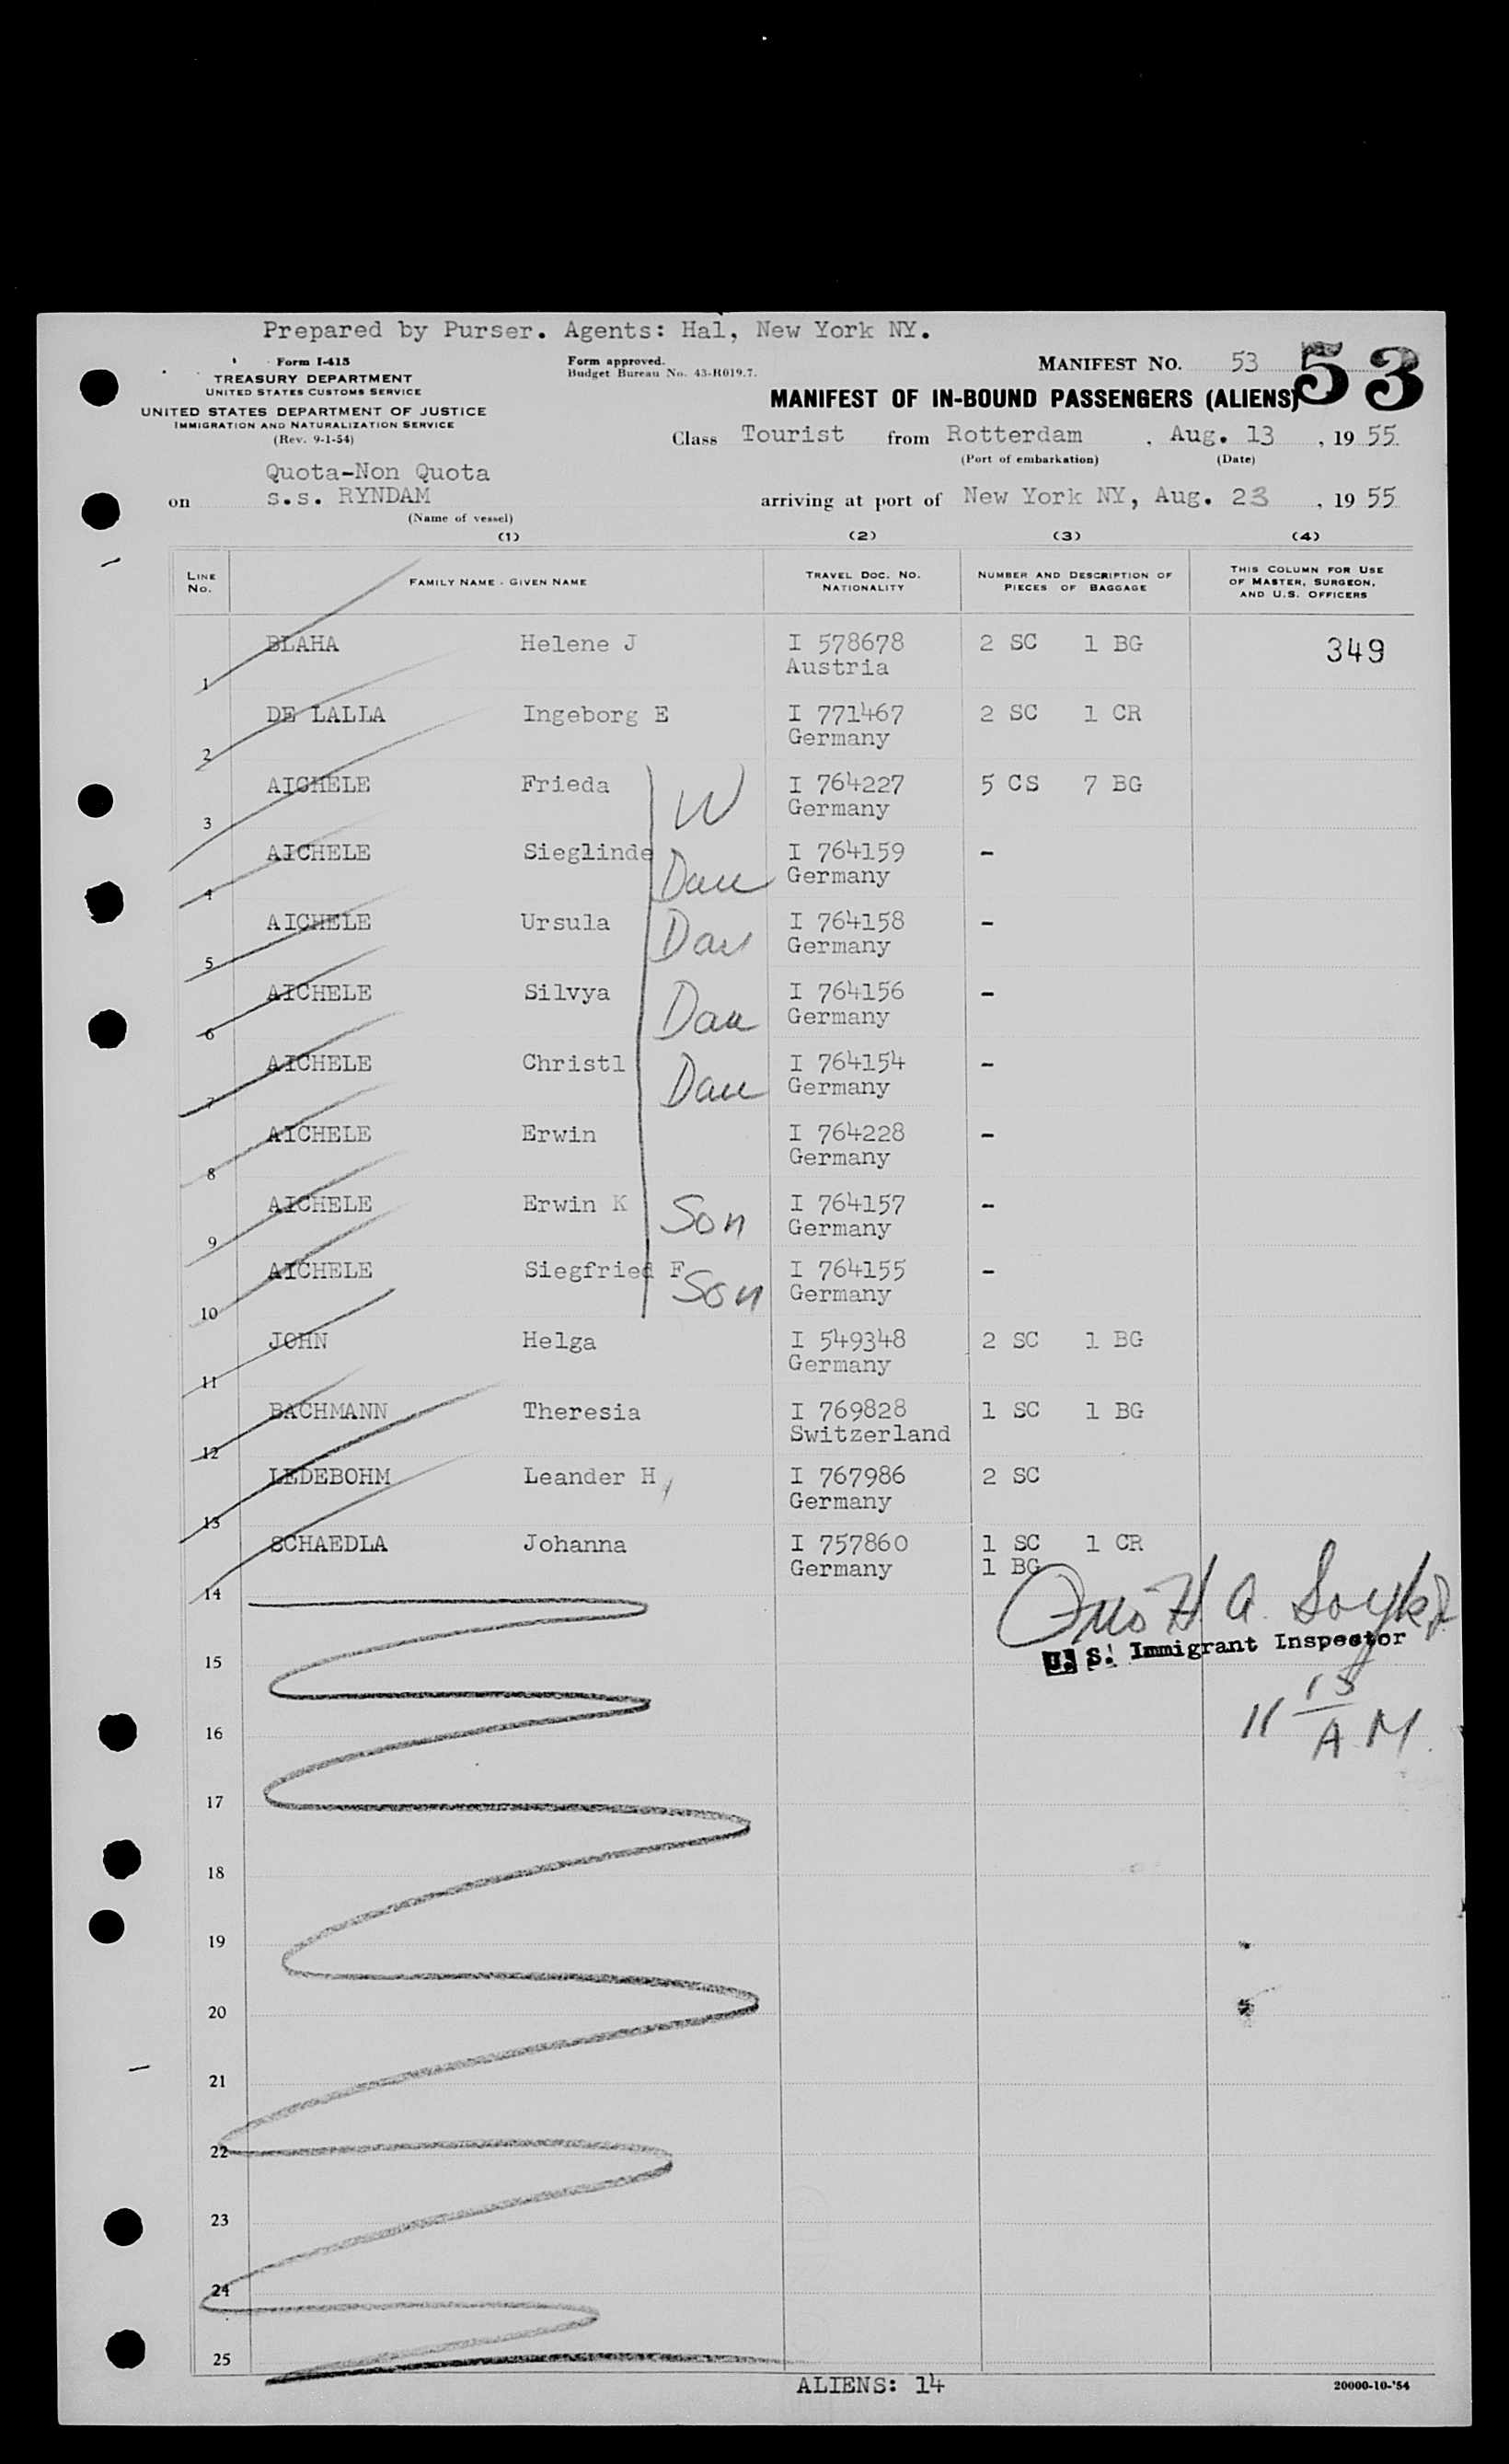 Prepared by Purser. Agents: Hal, New York NY.
Form I-415
TREASURY DEPARTMENT
UNITED STATES CUSTOMS SERVICE
UNITED STATES DEPARTMENT OF JUSTICE
IMMIGRATION AND NATURALIZATION SERVICE
(Rev. 9-1-54)
Form approved.
Budget Bureau No. 43-R019.7.
MANIFEST NO. 53 53
MANIFEST OF IN-BOUND PASSENGERS (ALIENS)
Class Tourist from Rotterdam , Aug. 13 , 19 55
(Port of embarkation) (Date)
Quota-Non Quota
on s.s. RYNDAM
(Name of vessel)
arriving at port of New York NY, Aug. 23 , 19 55
(1) (2) (3) (4)
LINE No. FAMILY NAME - GIVEN NAME TRAVEL DOC. NO. NATIONALITY NUMBER AND DESCRIPTION OF PIECES OF BAGGAGE THIS COLUMN FOR USE OF MASTER, SURGEON, AND U.S. OFFICERS
1 BLAHA Helene J I 578678 2 SC 1 BG 349
Austria
2 DE LALLA Ingeborg E I 771467 2 SC 1 CR
Germany
3 AICHELE Frieda W I 764227 5 CS 7 BG
Germany
4 AICHELE Sieglinde Dau I 764159 -
Germany
5 AICHELE Ursula Dau I 764158 -
Germany
6 AICHELE Silvya Dau I 764156 -
Germany
7 AICHELE Christl Dau I 764154 -
Germany
8 AICHELE Erwin I 764228 -
Germany
9 AICHELE Erwin K Son I 764157 -
Germany
10 AICHELE Siegfried F Son I 764155 -
Germany
11 JOHN Helga I 549348 2 SC 1 BG
Germany
12 BACHMANN Theresia I 769828 1 SC 1 BG
Switzerland
13 LEDEBOHM Leander H I 767986 2 SC
Germany
14 SCHAEDLA Johanna I 757860 1 SC 1 CR
Germany 1 BG
U. S. Immigrant Inspector
15
11 15 AM
16
17
18
19
20
21
22
23
24
25
ALIENS: 14
20000-10-'54